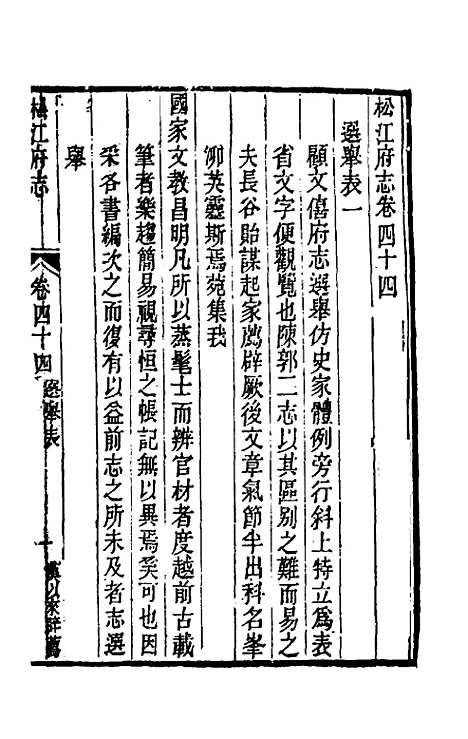 松江府志卷四十四
選舉表一
顧文僖府志選舉仿史家體例旁行斜上特立爲表
省文字便觀覽也陳郭二志以其區别之難而易之
夫長谷貽謀起家薦辟厥後文章氣節半出科名峯
泖英靈斯焉苑集我
國家文敎昌明凡所以蒸髦士而辨官材者度越前古載
筆者樂趨簡易視尋恒之帳記無以異焉奚可也因
采各書編次之而復有以益前志之所未及者志選
舉
松江府志
卷四十四
選舉表
一
漢以來辟薦